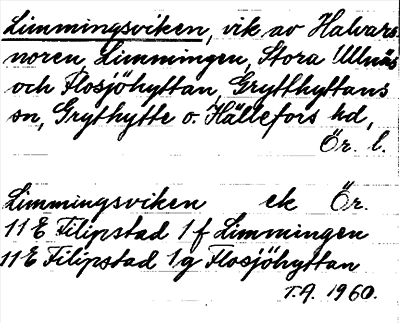 Limmingsviken, vik av Halvars
noren, Limmingen, Stora Ullnäs
och Flosjöhyttan, Grythyttans
sn, Grythytte o. Hällefors hd,
Ör. l.
Limmingsviken ek Ör.
11 E Filipstad 1 f Limmingen
11 E Filipstad 1 g Flosjöhyttan
T.q. 1960.